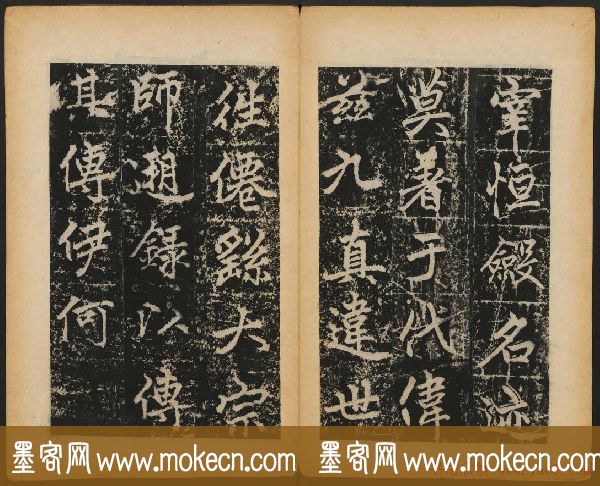 宰恒斂名迹
莫著于代偉
兹九真違世
往僊繇大宗
師遡錄以傳
其傳伊何
墨客网 www.mokecn.com
墨客网 www.mokecn.com